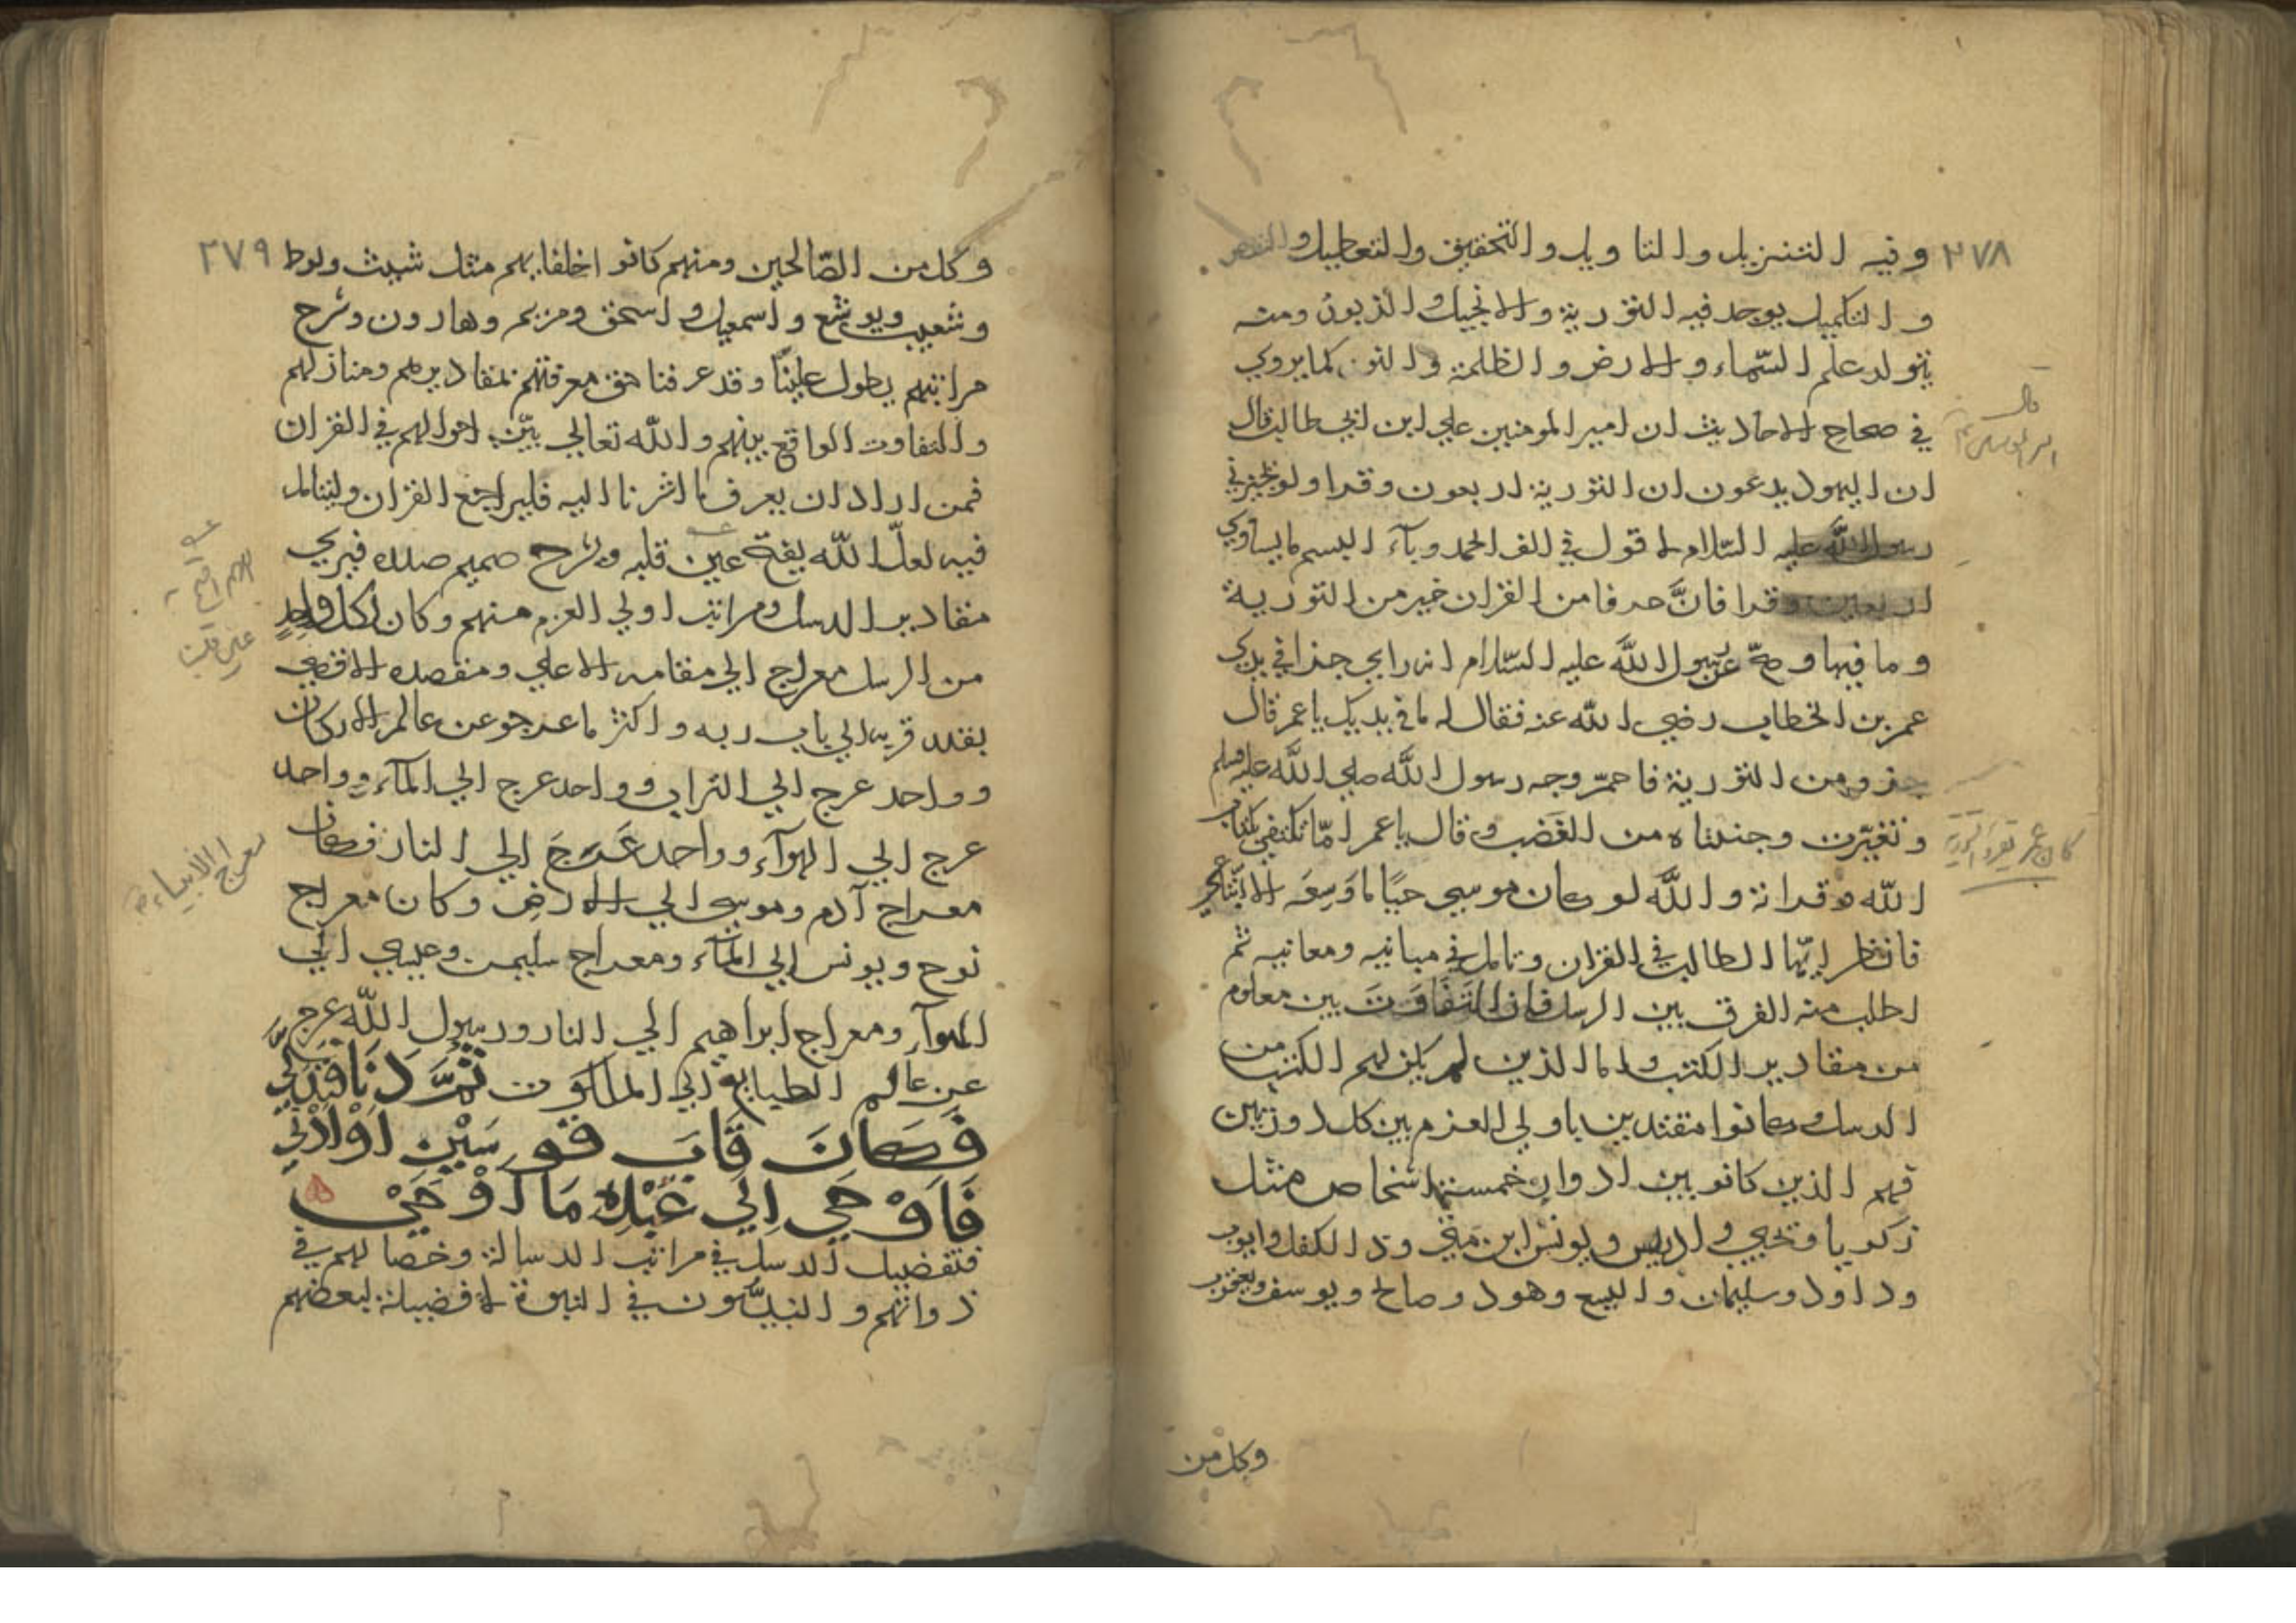 ٢٧٨
وفيه التنزيل والتاويل والتحقيق والتعطيل و
والتكميل يوجد فيه التورية والانجيل الزبور ومنه
يتولد علم السّماء والارض والظلمة والنور كما يروي
في صحاح الاحاديث ان امير المومنين علي ابن ابي طالب قال
ان اليهود يدعون ان التورية اربعون وقرا ولو يخبرني
رسول الله عليه السّلام لاقول في الف الحمد وبآء البسم ما يساوي
اربعين وقرا فانَّ حرفا من القران خير من التورية
وما فيها وصحّ عن رسول اللّه عليه السّلام انه راي جزا في يدي
عمر بن الخطاب رضي اللّه عنه فقال له ما في يديك يا عمر قال
جزو من التورية فاحمرّ وجه رسول اللّه صلي اللّه عليه وسلم
وتغيّرت وجنتاه من الغضب وقال يا عمر امّا تكتفي بكتاب
اللّه وقرانه واللّه لو كان موسي حيًا لما وَسِعَه الا اتّباعي
فانظر ايّها الطالب في القران وتامل في مبانيه ومعانيه ثم
اطلب منه الفرق بين الرسل فان التفاوت بين معلوم
من مقادير الكتب واما الذين لم يكن لهم الكتب من
الرسل وكانوا مقتدين باولي العزم بين كل دورتين
فهم الذين كانو بين ادوار خمسة اشخاص مثل
زكريا ويحيي وادريس ويونس ابن متي وذا الكفل وايوب
وداود وسليمان واليسع وهود وصالح ويوسف ويعقوب
وكل من
قال
امير المومنين
كان عمر يقرء التورية
٢٧٩
وكل من الصّالحين ومنهم كانو اخلفايهم مثل شيث ولوط
وشعيب ويوشع واسمعيل واسحق ومريم وهارون وشرح
مراتبهم يطول علينّا وقد عرفنا حق معرفتهم بمقاديرهم ومنازلهم
والتفاوت الواقع بينهم واللّه تعالي بيّن احوالهم في القران
فمن اراد ان يعرف ما اشرنا اليه فليراجع القران وليتامل
فيه لعلّ اللّه يفتح عين قلبه ويشرح صميم صدره فيري
مقادير الرسل ومراتب اولي العزم منهم وكان لكل واحدٍ
من الرسل معراج الي مقامه الاعلي ومقصده الاقصي
بقدر قربه الي باب ربه واكثر ما عرجو عن عالم الاركان
وواحد عرج الي التراب وواحد عرج الي المآء وواحد
عرج الي الهوآء وواحد عَرَجَ الي النار فكان
معراج آدم وموسي الي الارض وكان معراج
نوح ويونس الي المآء ومعراج سليمن وعيسي الي
الهوآء ومعراج ابراهيم الي النار ورسول اللّه عرج
عن عالم الطبايع الي الملكوت ثُمَّ دَنَا فَتَدَلَّي
فَكَانَ قَابَ قَوسَيْنِ اَوْ اَدْنَي
فَاَوْحَي اِلَي عَبْدِهِ مَا اَوْحَيْ
فتفضيل الرسل في مراتب الرسالة وخصالهم في
ذواتهم والنبيّون في النبوة لا فضيلة لبعضهم
اللهم افتح
عين قلبي
معراج الانبياء